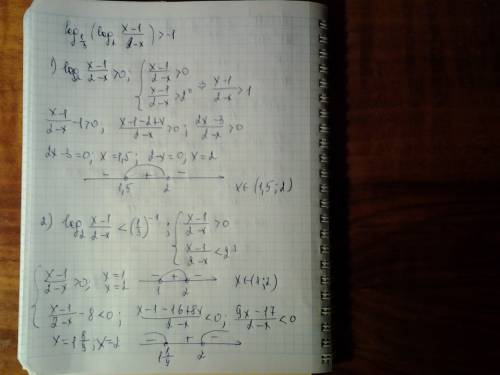 log₁/₃ (log₂ (x-1)/(2-x)) > -1
1) log₂ (x-1)/(2-x) > 0; { (x-1)/(2-x) > 0
(x-1)/(2-x) > 2⁰ ⇒ (x-1)/(2-x) > 1
(x-1)/(2-x) - 1 > 0; (x-1-2+x)/(2-x) > 0; (2x-3)/(2-x) > 0
2x-3=0; x=1,5; 2-x=0; x=2
- + -
1,5 2 x∈(1,5;2)
2) log₂ (x-1)/(2-x) < (1/3)⁻¹; { (x-1)/(2-x) > 0
(x-1)/(2-x) < 2³
{ (x-1)/(2-x) > 0; x=1 x=2 - + - 1 2 x∈(1;2)
(x-1)/(2-x) - 8 < 0; (x-1-16+8x)/(2-x) < 0; (9x-17)/(2-x) < 0
x=1 8/9; x=2 - + -
1 8/9 2